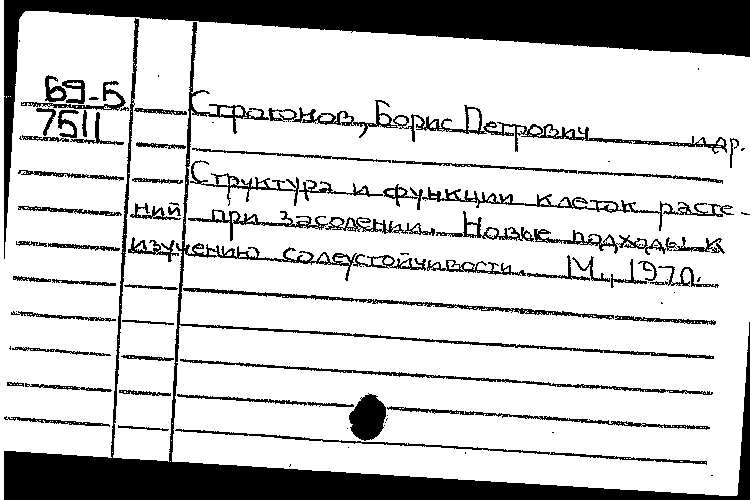 69-5
7511
Строгонов, Борис Петрович и др.
Структура и функции клеток расте-
ний при засолении. Новые подходы к
изучению солеустойчивости. М., 1970.